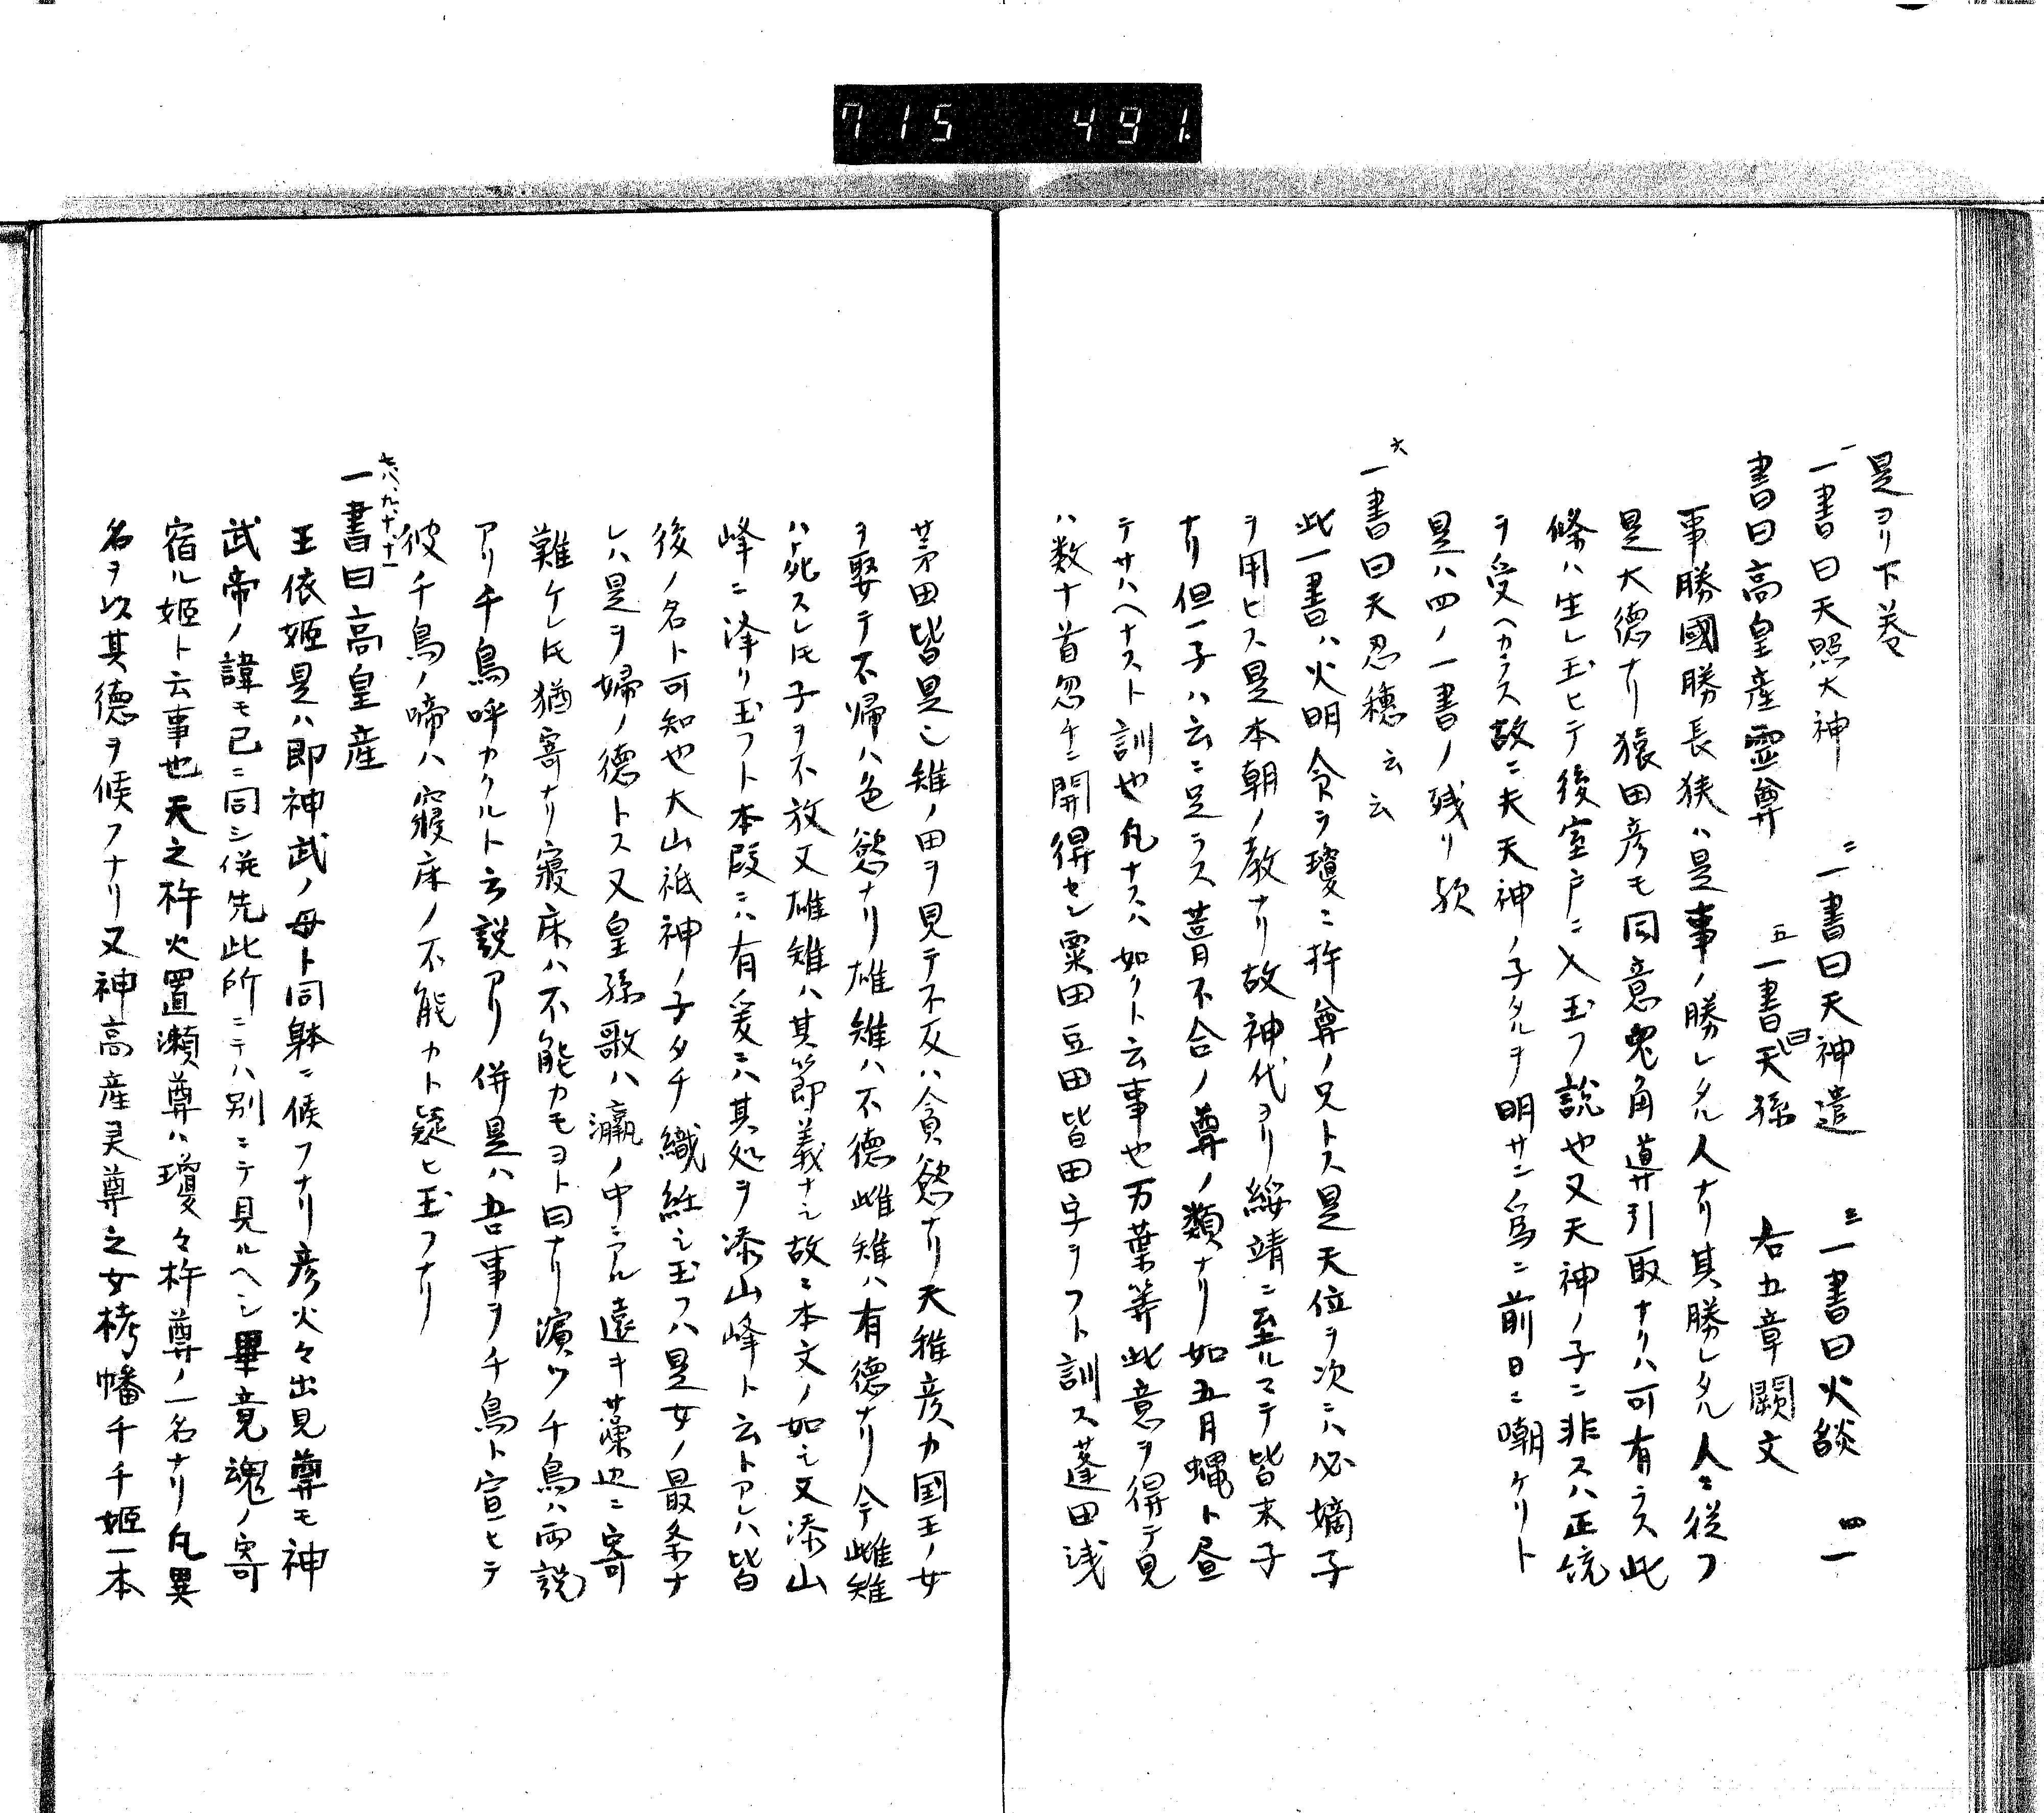 715 491.
是ヨリ下巻
一一書曰天照大神 二一書曰天神遣 三一書曰火焔 四一
書曰高皇産霊尊 五一書曰天孫 右五章闕文
事勝國勝長狭ハ是事ノ勝レタル人ナリ其勝レタル人ニ従フ
是大徳ナリ猿田彦モ同意鬼角導引取ナクハ可有ラス此
條ハ生レ玉ヒテ後室戸ニ入玉フ説也又天神ノ子ニ非スハ正統
ヲ受ヘカラス故ニ夫天神ノ子タルヲ明サン為ニ前日ニ嘲ケリト
是ハ四ノ一書ノ残リ欤
六一書曰天忍穂云云
此一書ハ火明命ヲ瓊ニ杵尊ノ兄トス是天位ヲ次ニハ必嫡子
ヲ用ヒス是本朝ノ教ナリ故神代ヨリ綏靖ニ至ルマテ皆末子
ナリ但一子ハ云ニ足ラス葺不合ノ尊ノ類ナリ如五月蠅ト昼
テサハヘナスト訓也凡ナスハ如クト云事也万葉等此意ヲ得テ見
ハ数十首忽チニ開得セン粟田豆田皆田字ヲフト訓ス蓬田浅
茅田皆是也雉ノ田ヲ見テ不反ハ貪慾ナリ天稚彦カ国王ノ女
ヲ娶テ不帰ハ色慾ナリ雄雉ハ不徳雌雉ハ有徳ナリ今雌雉
ハ死スレ𪜈子ヲ不放又雄雉ハ其節義ナシ故ニ本文ノ如シ又添山
峰ニ洚リ玉フト本段ニハ有ノ爰ニハ其処ヲ添山峰ト云トアレハ皆
後ノ名ト可知也大山祇神ノ子タチ織紝シ玉フハ是女ノ最条ナ
レハ是ヲ婦ノ徳トス又皇孫歌ハ瀛ノ中ニアル遠キサ藻辺ニ寄
難ケレ𪜈猶寄ナリ寝床ハ不能カモヨト曰ナリ濱ツ千鳥ハ両説
アリ千鳥呼カクルト云説アリ併是ハ吾事ヲ千鳥ト宣ヒテ
彼千鳥ノ啼ハ寝床ノ不能カト疑ヒ玉フナリ
七、八、九、十、十一
一書曰高皇産
玉依姫是ハ即神武ノ母ト同躰ニ候フナリ彦火々出見尊モ神
武帝ノ諱モ已ニ同シ併先此所ニテハ別ニテ見ルヘシ畢竟魂ノ寄
宿ル姫ト云事也天之杵火置瀬尊ハ瓊々杵尊ノ一名ナリ凡異
名ヲ以其徳ヲ候フナリ又神高産灵尊之女栲幡千千姫一本